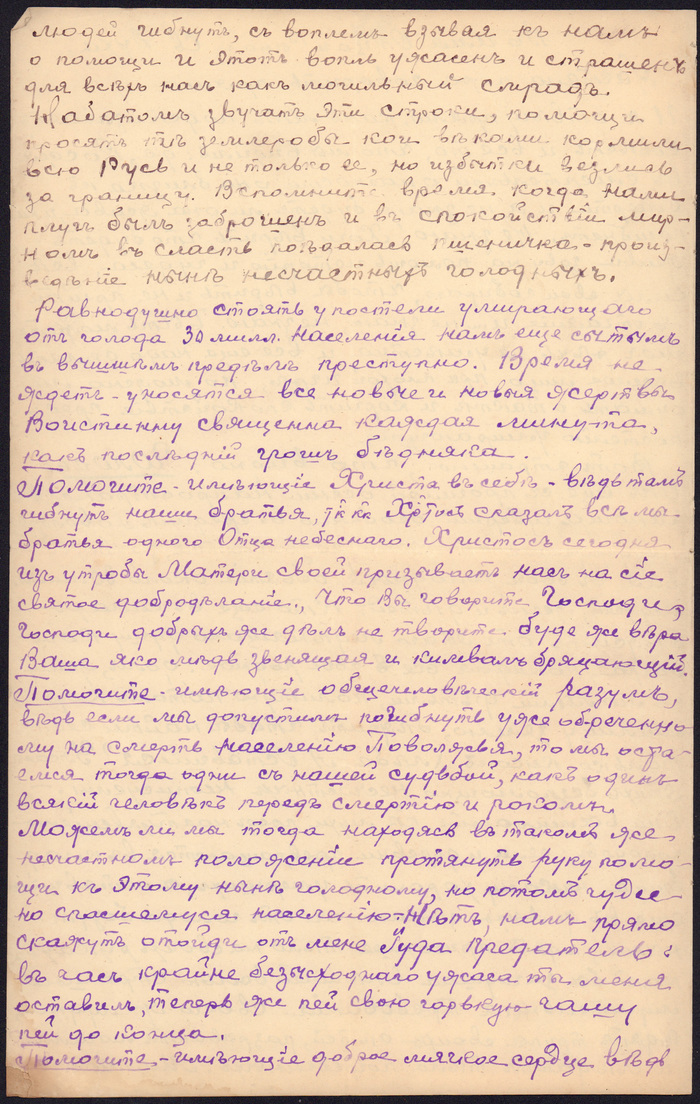 людей гибнутъ, съ воплемъ взывая къ намъ
о помощи и этотъ вопль ужасенъ и страшенъ
для всѣхъ насъ какъ могильный смрадъ.
Набатомъ звучатъ эти строки, помощи
просятъ тѣ землеробы кои вѣками кормили
всю Русь и не только ее, но избытки везлись
за границу. Вспомните время когда нами
плугъ былъ заброшенъ и въ спокойствіи мир-
номъ въ сласть поѣдалась пшеничка - произ-
ведѣніе нынѣ несчастныхъ голодныхъ.
Равнодушно стоять у постели умирающаго
отъ голода 30 милл. населенія намъ еще сытымъ
въ вышшемъ предѣлѣ преступно. Время не
ждетъ - уносятся все новые и новыя жертвы
Воистинну священна каждая минута,
какъ послѣдній грошъ бѣдняка.
Помогите - имѣющіе Христа въ себѣ - вѣдь тамъ
гибнутъ наши братья, сказалъ всѣ мы
братья одного Отца небеснаго. Христосъ сегодня
изъ утробы Матери своей призываетъ насъ на сіе
святое добродѣланіе, "Что Вы говорите Господи,
Господи добрыхъ же дѣлъ не творите буде же вѣра
Ваша яко мѣдь звенящая и кимвалъ бряцающій.
Помогите - имѣющіе общечеловѣческій разумъ,
вѣдь если мы допустимъ погибнуть уже обреченно
му на смерть населенію Поволжья, то мы оста-
емся тогда одни съ нашей судьбой, какъ одинъ
всякій человѣкъ передъ смертію и рокомъ.
Можемъ ли мы тогда находясь въ такомъ же
несчастномъ положеніе протянуть руку помо-
щи къ этому нынѣ голодному, но потомъ чудес-
но спасшемуся населенію - Нѣтъ, намъ прямо
скажутъ отойди отъ мене Іуда предатель:
въ часъ крайне безысходнаго ужаса ты меня
оставилъ, теперь же пей свою горькую чашу
пей до конца.
Помогите - имѣющіе доброе мягкое сердце вѣдь